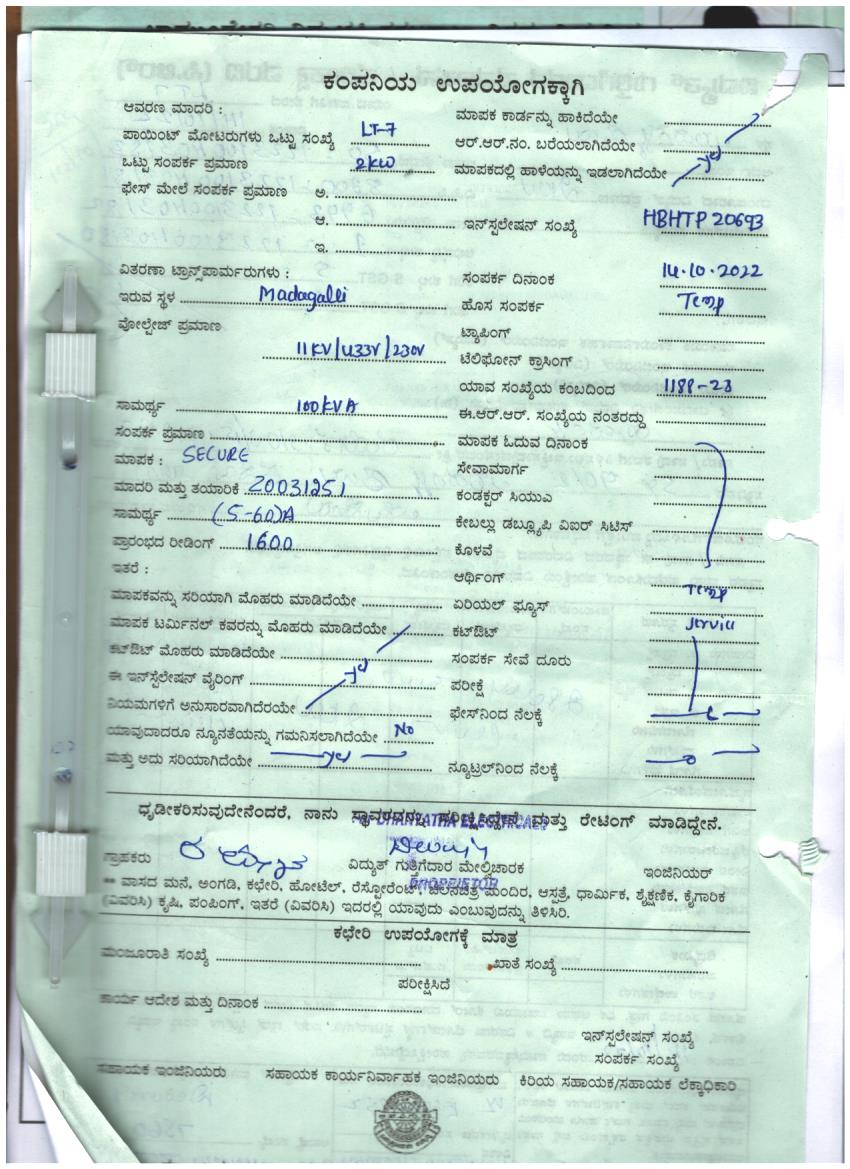 ಕಂಪನಿಯ ಉಪಯೋಗಕ್ಕಾಗಿ
ಆವರಣ ಮಾದರಿ :
ಪಾಯಿಂಟ್ ಮೋಟರುಗಳು ಒಟ್ಟು ಸಂಖ್ಯೆ LT-7
ಒಟ್ಟು ಸಂಪರ್ಕ ಪ್ರಮಾಣ 2KW
ಫೇಸ್ ಮೇಲೆ ಸಂಪರ್ಕ ಪ್ರಮಾಣ ಅ.
ಆ.
ಇ.
ವಿತರಣಾ ಟ್ರಾನ್ಸ್‌ಪಾರ್ಮರುಗಳು :
ಇರುವ ಸ್ಥಳ Madagalli
ವೋಲ್ಟೇಜ್ ಪ್ರಮಾಣ
11KV/433V/230V
ಸಾಮರ್ಥ್ಯ 100KVA
ಸಂಪರ್ಕ ಪ್ರಮಾಣ
ಮಾಪಕ : SECURE
ಮಾದರಿ ಮತ್ತು ತಯಾರಿಕೆ 20031251
ಸಾಮರ್ಥ್ಯ (5-60)A
ಪ್ರಾರಂಭದ ರೀಡಿಂಗ್ 1600
ಇತರೆ :
ಮಾಪಕವನ್ನು ಸರಿಯಾಗಿ ಮೊಹರು ಮಾಡಿದೆಯೇ
ಮಾಪಕ ಟರ್ಮಿನಲ್ ಕವರನ್ನು ಮೊಹರು ಮಾಡಿದೆಯೇ
ಕಟ್‌ಔಟ್ ಮೊಹರು ಮಾಡಿದೆಯೇ
ಈ ಇನ್‌ಸ್ಟೆಲೇಷನ್ ವೈರಿಂಗ್
ನಿಯಮಗಳಿಗೆ ಅನುಸಾರವಾಗಿದೆರಯೇ
ಯಾವುದಾದರೂ ನ್ಯೂನತೆಯನ್ನು ಗಮನಿಸಲಾಗಿದೆಯೇ No
ಮತ್ತು ಅದು ಸರಿಯಾಗಿದೆಯೇ
ಮಾಪಕ ಕಾರ್ಡನ್ನು ಹಾಕಿದೆಯೇ
ಆರ್.ಆರ್.ನಂ. ಬರೆಯಲಾಗಿದೆಯೇ
ಮಾಪಕದಲ್ಲಿ ಹಾಳೆಯನ್ನು ಇಡಲಾಗಿದೆಯೇ
ಇನ್‌ಸ್ಪಲೇಷನ್ ಸಂಖ್ಯೆ HBHTP 20693
ಸಂಪರ್ಕ ದಿನಾಂಕ 14.10.2022
ಹೊಸ ಸಂಪರ್ಕ Temp
ಟ್ಯಾಪಿಂಗ್
ಟೆಲಿಫೋನ್ ಕ್ರಾಸಿಂಗ್
ಯಾವ ಸಂಖ್ಯೆಯ ಕಂಬದಿಂದ 1188-23
ಈ.ಆರ್.ಆರ್. ಸಂಖ್ಯೆಯ ನಂತರದ್ದು
ಮಾಪಕ ಓದುವ ದಿನಾಂಕ
ಸೇವಾಮಾರ್ಗ
ಕಂಡಕ್ಟರ್ ಸಿಯುಎ
ಕೇಬಲ್ಲು ಡಬ್ಲ್ಯೂಪಿ ವಿಐರ್ ಸಿಟಿಸ್
ಕೊಳವೆ
ಆರ್ಥಿಂಗ್
ಏರಿಯಲ್ ಫ್ಯೂಸ್ Temp
ಕಟ್‌ಔಟ್
ಸಂಪರ್ಕ ಸೇವೆ ದೂರು
ಪರೀಕ್ಷೆ
ಫೇಸ್‌ನಿಂದ ನೆಲಕ್ಕೆ
ನ್ಯೂಟ್ರಲ್‌ನಿಂದ ನೆಲಕ್ಕೆ
ಧೃಡೀಕರಿಸುವುದೇನೆಂದರೆ, ನಾನು ಸ್ಥಾವರವನ್ನು ಪರೀಕ್ಷಿಸಿದ್ದೇನೆ ಮತ್ತು ರೇಟಿಂಗ್ ಮಾಡಿದ್ದೇನೆ.
ಗ್ರಾಹಕರು ವಿದ್ಯುತ್ ಗುತ್ತಿಗೆದಾರ ಮೇಲ್ವಿಚಾರಕ ಇಂಜಿನಿಯರ್
PROPRIETOR
** ವಾಸದ ಮನೆ, ಅಂಗಡಿ, ಕಛೇರಿ, ಹೋಟೆಲ್, ರೆಸ್ಟೋರೆಂಟ್, ಚಲನಚಿತ್ರ ಮಂದಿರ, ಆಸ್ಪತ್ರೆ, ಧಾರ್ಮಿಕ, ಶೈಕ್ಷಣಿಕ, ಕೈಗಾರಿಕ
(ವಿವರಿಸಿ) ಕೃಷಿ, ಪಂಪಿಂಗ್, ಇತರೆ (ವಿವರಿಸಿ) ಇದರಲ್ಲಿ ಯಾವುದು ಎಂಬುವುದನ್ನು ತಿಳಿಸಿರಿ.
ಕಛೇರಿ ಉಪಯೋಗಕ್ಕೆ ಮಾತ್ರ
ಮಂಜೂರಾತಿ ಸಂಖ್ಯೆ ಖಾತೆ ಸಂಖ್ಯೆ
ಪರೀಕ್ಷಿಸಿದೆ
ಕಾರ್ಯ ಆದೇಶ ಮತ್ತು ದಿನಾಂಕ
ಇನ್‌ಸ್ಪಲೇಷನ್ ಸಂಖ್ಯೆ
ಸಂಪರ್ಕ ಸಂಖ್ಯೆ
ಸಹಾಯಕ ಇಂಜಿನಿಯರು ಸಹಾಯಕ ಕಾರ್ಯನಿರ್ವಾಹಕ ಇಂಜಿನಿಯರು ಕಿರಿಯ ಸಹಾಯಕ/ಸಹಾಯಕ ಲೆಕ್ಕಾಧಿಕಾರಿ